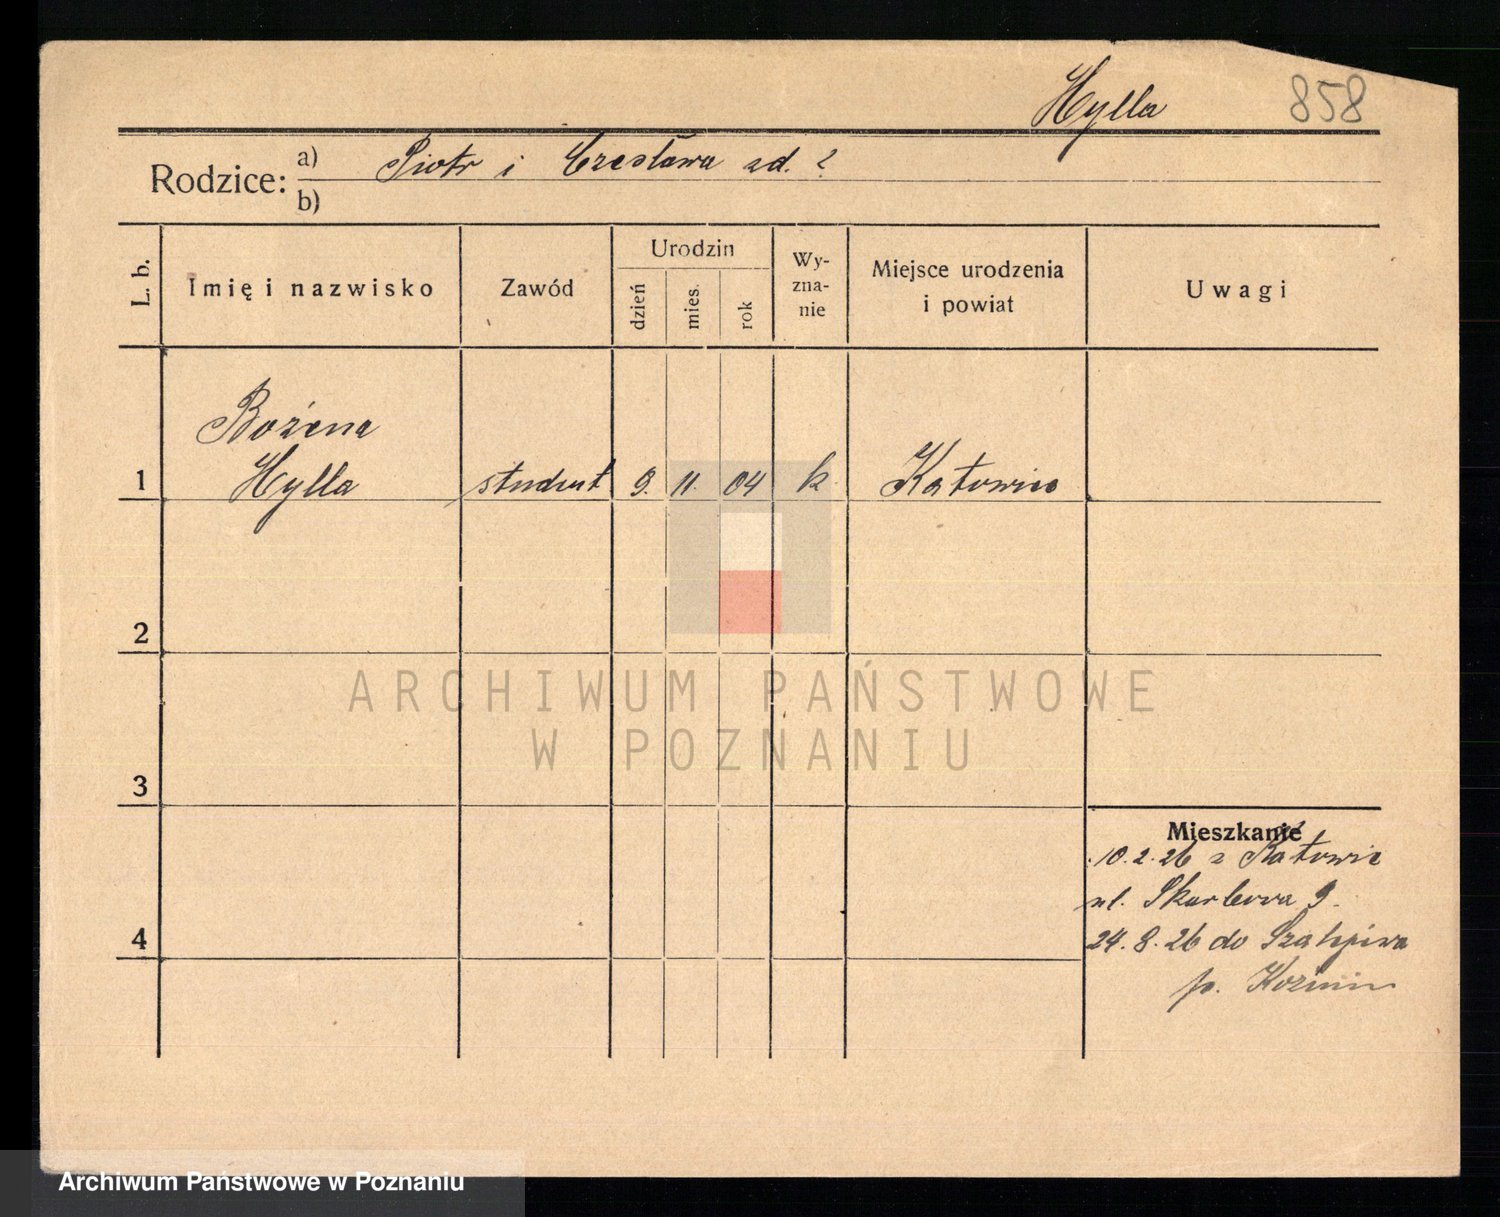 Hylla 858
Rodzice: a) Piotr i Czesława zd. ?
b)
L. b. Imię i nazwisko Zawód Urodzin dzień mies. rok Wy-zna-nie Miejsce urodzenia i powiat Uwagi
Bożena
1 Hylla student 9. 11. 04 k Katowice
2
ARCHIWUM PAŃSTWOWE
W POZNANIU
3
Mieszkanie
10.2.26 z Katowic
ul. Skarbowa 9.
4 24.8.26 do
p. Koźmin
Archiwum Państwowe w Poznaniu